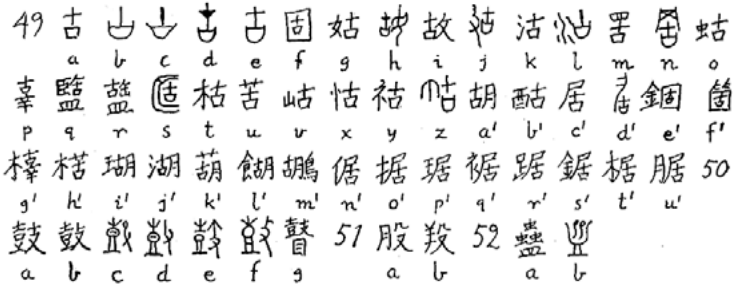 49 古 固 姑 故 沽 罟 蛄
a b c d e f g h i j k l m n o
辜 盬 枯 苦 岵 怙 祜 胡 酤 居 錮 箇
p q r s t u v x y z a' b' c' d' e' f'
橭 楛 瑚 湖 葫 餬 鶘 倨 据 琚 裾 踞 鋸 椐 腒 50
g' h' i' j' k' l' m' n' o' p' q' r' s' t' u'
鼓 鼔 瞽 51 股 羖 52 蠱
a b c d e f g a b a b